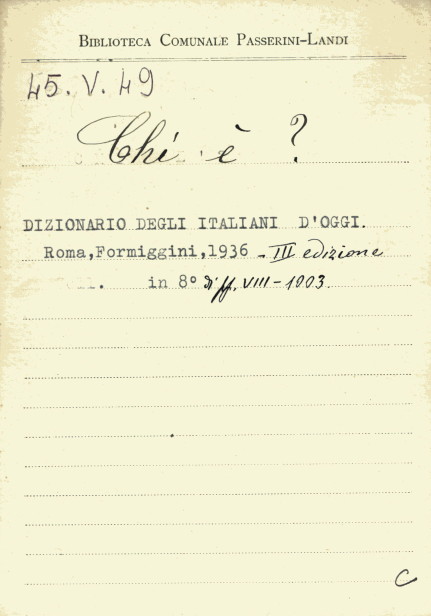 BIBLIOTECA COMUNALE PASSERINI-LANDI
45. V. 49
Chi è ?
DIZIONARIO DEGLI ITALIANI D'OGGI.
Roma, Formiggini, 1936 - III edizione
in 8° di ff. VIII - 1003.
C